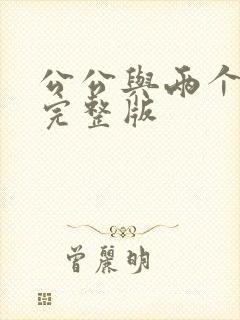 公公與兩个
完整版
曾麗明